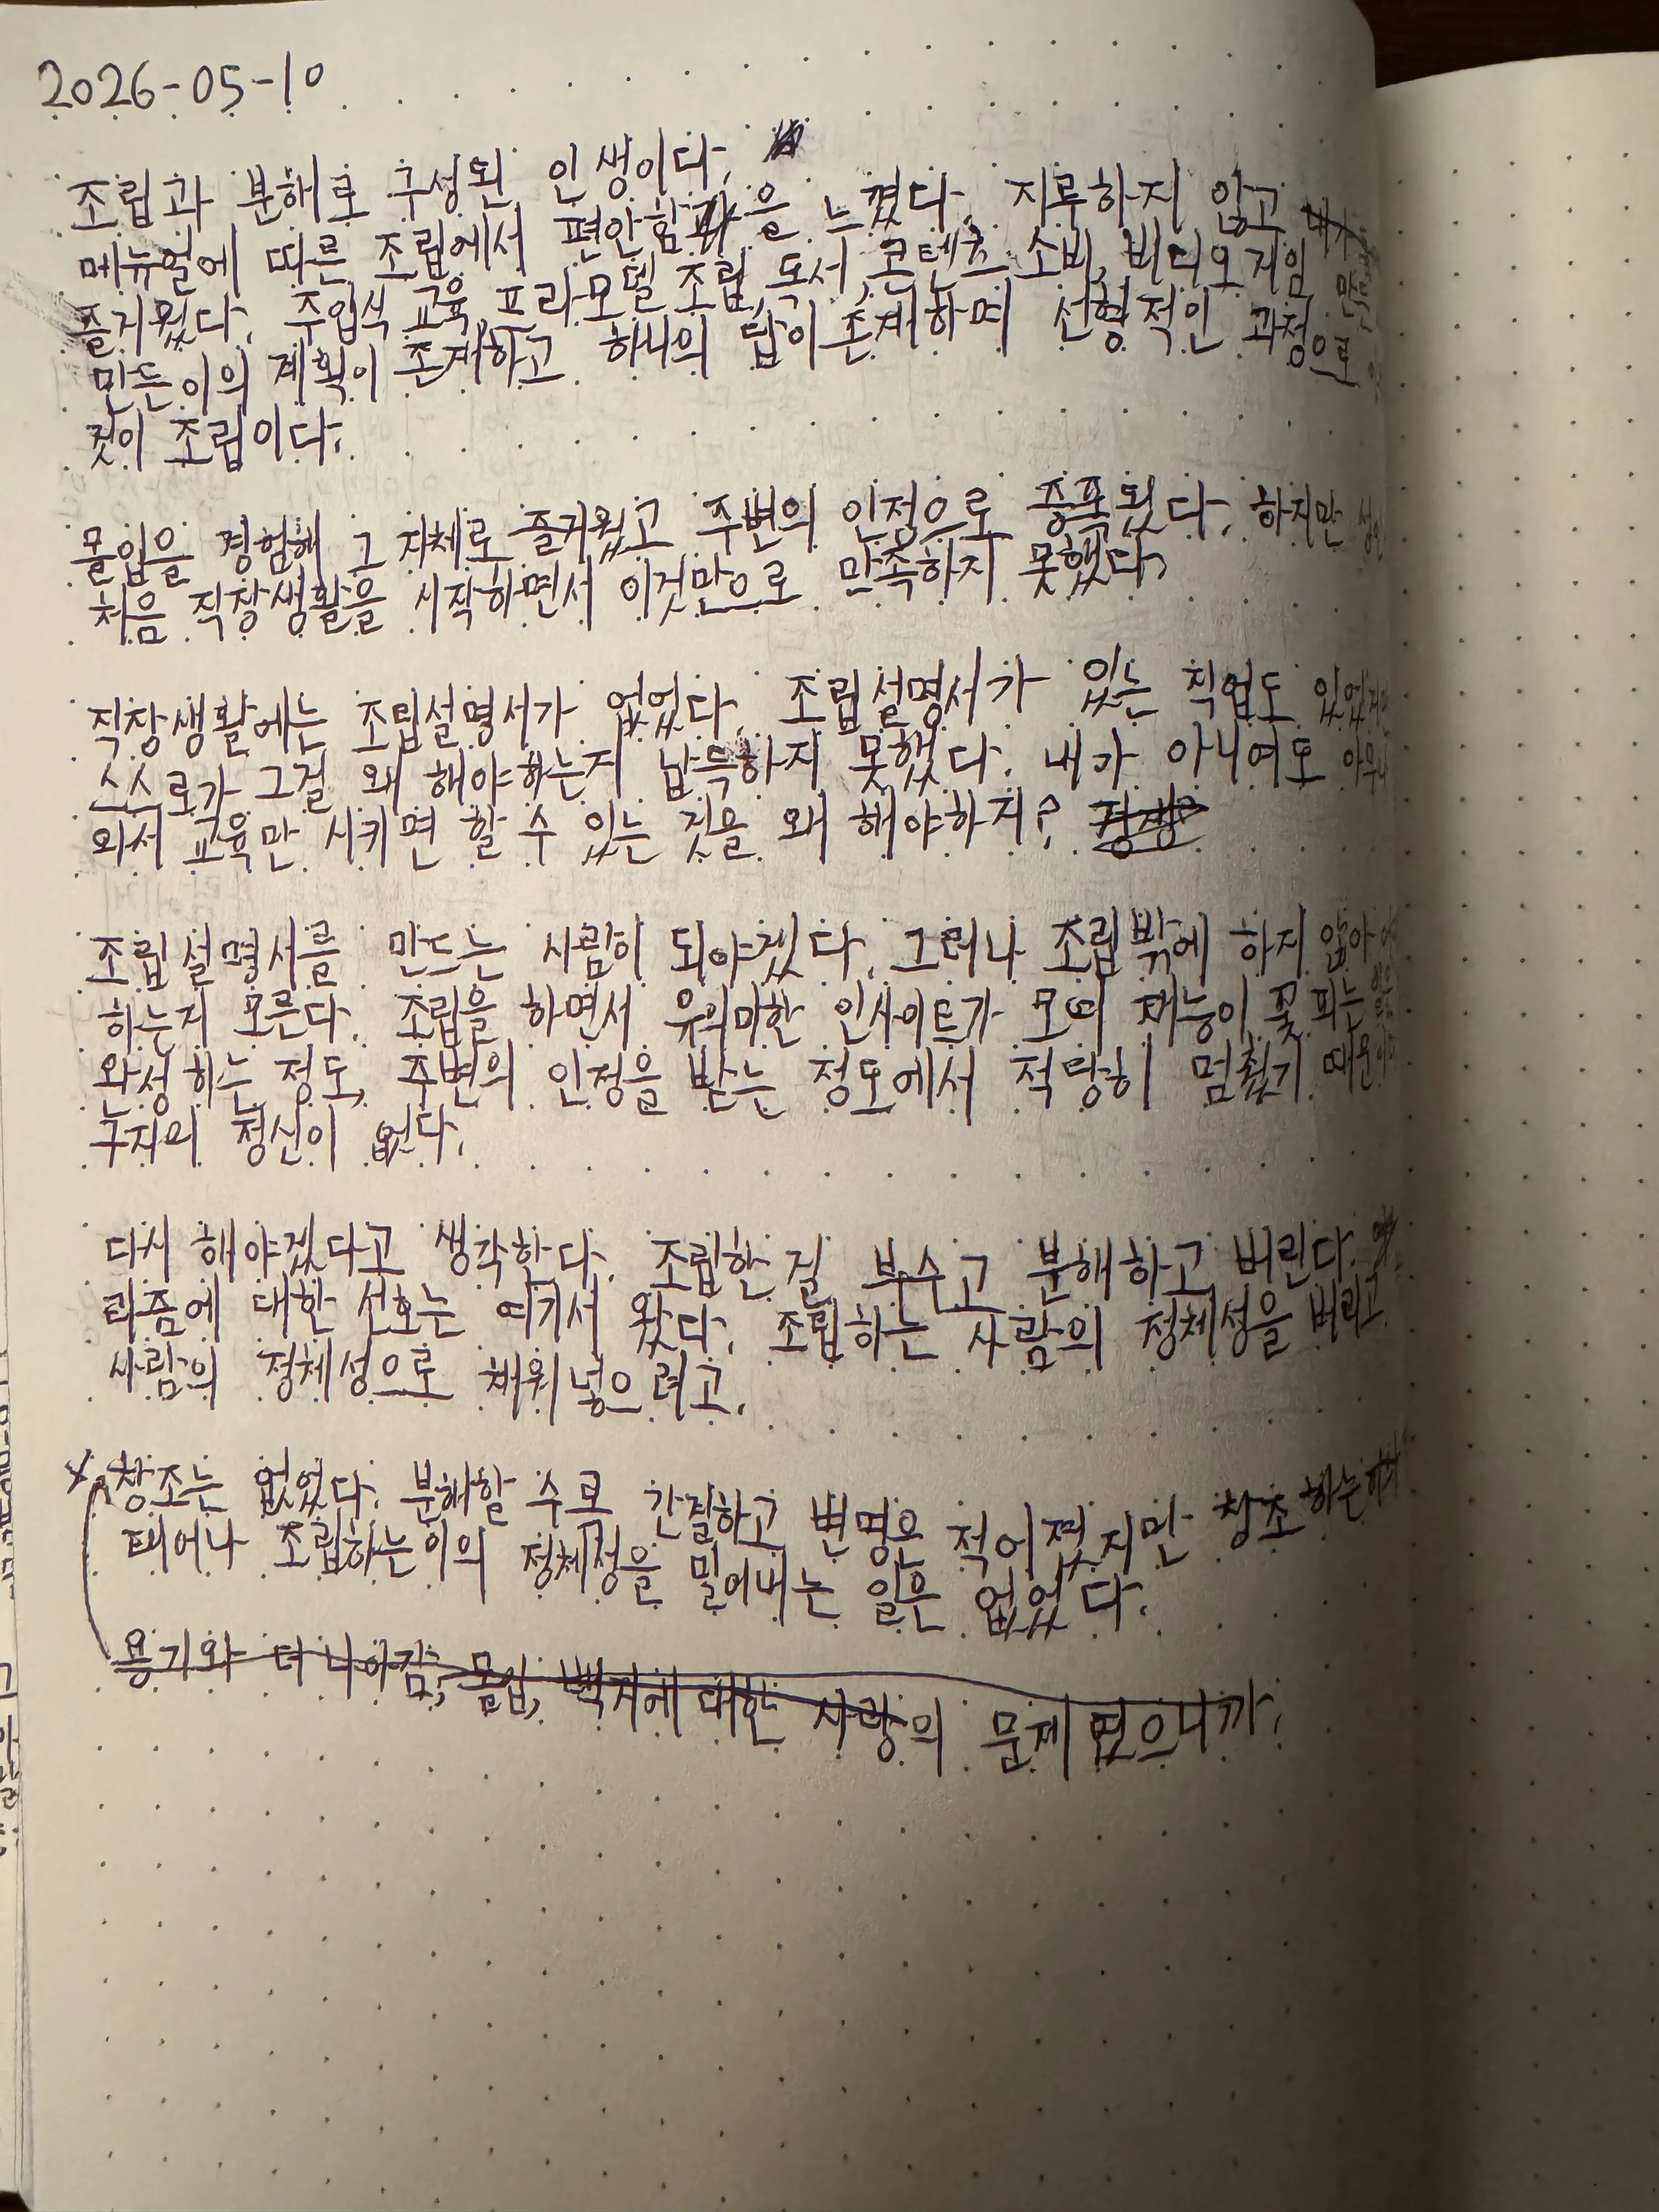 2026-05-10
조립과 분해로 구성된 인생이다.
메뉴얼에 따른 조립에서 편안함을 느꼈다. 지루하지 않고
즐거웠다. 주입식 교육, 프라모델 조립, 독서, 콘텐츠 소비, 비디오 게임
만든이의 계획이 존재하고 하나의 답이 존재하며 선형적인 과정으로
것이 조립이다.
몰입을 경험해 그 자체로 즐거웠고 주변의 인정으로 증폭됬다. 하지만
처음 직장생활을 시작하면서 이것만으로 만족하지 못했다.
직장생활에는 조립설명서가 없었다. 조립설명서가 있는 직업도
스스로가 그걸 왜 해야하는지 납득하지 못했다. 내가 아니여도
와서 교육만 시키면 할 수 있는 것을 왜 해야하지?
조립설명서를 만드는 사람이 되야겠다. 그러나 조립밖에 하지 않아
하는지 모른다. 조립을 하면서 유의미한 인사이트가 모여 재능이 꽃 피는
완성하는 정도, 주변의 인정을 받는 정도에서 적당히 멈췄기 때문
구자의 정신이 없다.
다시 해야겠다고 생각한다. 조립한 걸 부수고 분해하고 버린다.
리즘에 대한 선호는 여기서 왔다. 조립하는 사람의 정체성을 버리고
사람의 정체성으로 채워넣으려고.
창조는 없었다. 분해할 수로 간절하고 변명은 적어졌지만 창조하는
태어나 조립하는이의 정체성을 밀어내는 일은 없었다.
용기와 더 나아감, 몰입, 백지에 대한 사랑의 문제였으니까.